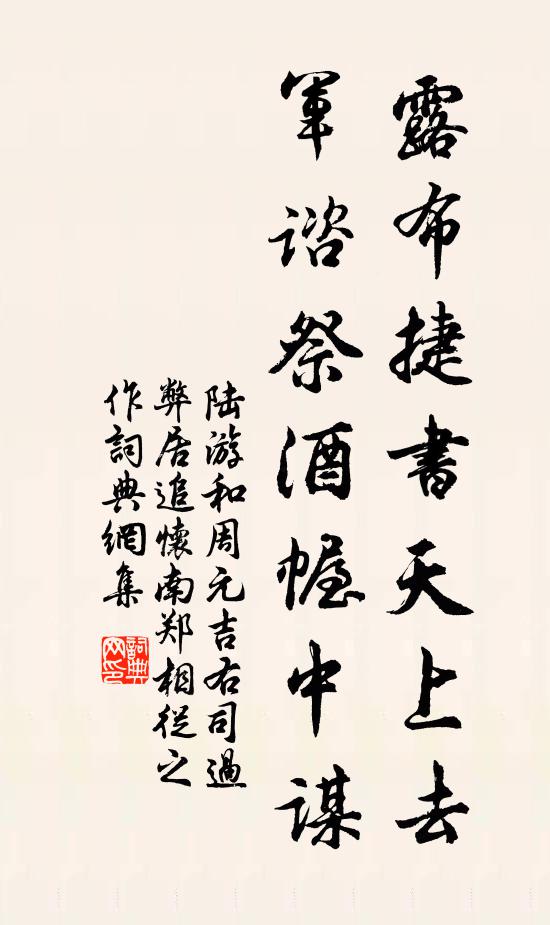 露布捷書天上去
軍諮祭酒幄中謀
陆游和周元吉右司過
弊居追懷南郑相從之
作詞典網集
詞典網印